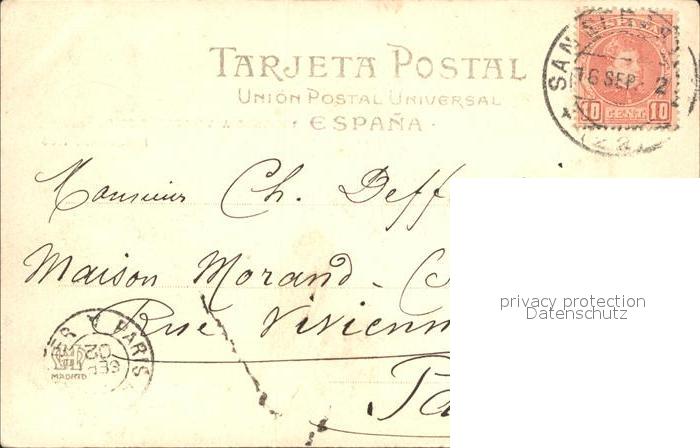 TARJETA POSTAL
UNIÓN POSTAL UNIVERSAL
ESPAÑA
ESPAÑA
10 CENT. 10
SAN
16 SEP. 2
Monsieur Ch. Deff
Maison Morand - C
Rue Vivienn
Pa
A PARIS
SEP
02
MADRID
privacy protection
Datenschutz